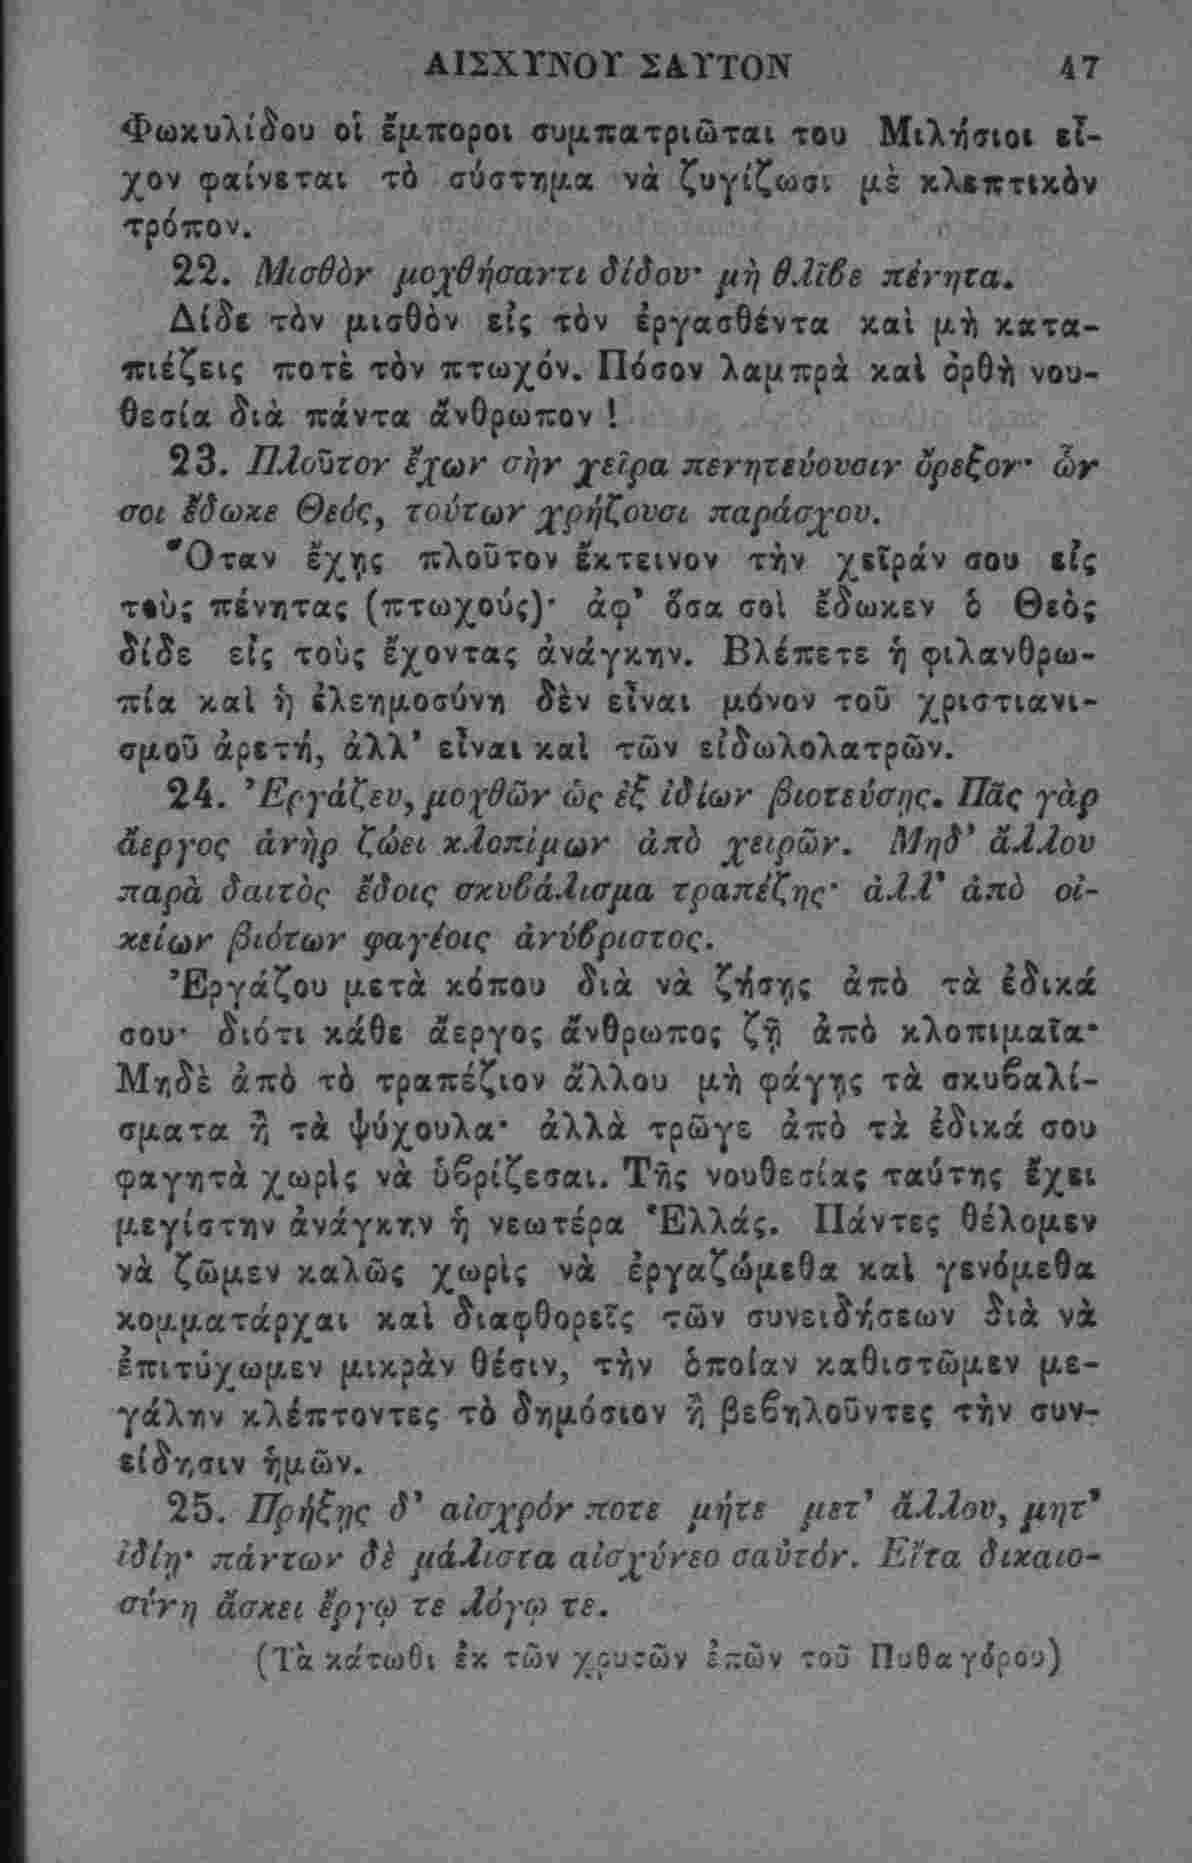 ΑΙΣΧΥΝΟΥ ΣΑΥΤΟΝ 47
Φωκυλίδου οἱ ἔμποροι συμπατριῶται του Μιλήσιοι εἶ-
χον φαίνεται τὸ σύστημα νὰ ζυγίζωσι μὲ κλεπτικὸν
τρόπον.
22. Μισθὸν μοχθήσαντι δίδου· μὴ θλῖβε πένητα.
Δίδε τὸν μισθὸν εἰς τὸν ἐργασθέντα καὶ μὴ κατα-
πιέζεις ποτὲ τὸν πτωχόν. Πόσον λαμπρὰ καὶ ὀρθὴ νου-
θεσία διὰ πάντα ἄνθρωπον !
23. Πλοῦτον ἔχων σὴν χεῖρα πενητεύουσιν ὄρεξον· ὧν
σοι ἔδωκε Θεός, τούτων χρῄζουσι παράσχου.
Ὅταν ἔχῃς πλοῦτον ἔκτεινον τὴν χεῖράν σου εἰς
τοὺς πένητας (πτωχούς)· ἀφ' ὅσα σοὶ ἔδωκεν ὁ Θεὸς
δίδε εἰς τοὺς ἔχοντας ἀνάγκην. Βλέπετε ἡ φιλανθρω-
πία καὶ ἡ ἐλεημοσύνη δὲν εἶναι μόνον τοῦ χριστιανι-
σμοῦ ἀρετή, ἀλλ' εἶναι καὶ τῶν εἰδωλολατρῶν.
24. Ἐργάζευ, μοχθῶν ὡς ἐξ ἰδίων βιοτεύσῃς. Πᾶς γὰρ
ἄεργος ἀνὴρ ζώει κλοπίμων ἀπὸ χειρῶν. Μηδ' ἄλλου
παρὰ δαιτὸς ἔδοις σκυβάλισμα τραπέζης· ἀλλ' ἀπὸ οἰ-
κείων βιότων φαγέοις ἀνύβριστος.
Ἐργάζου μετὰ κόπου διὰ νὰ ζήσῃς ἀπὸ τὰ ἐδικά
σου· διότι κάθε ἄεργος ἄνθρωπος ζῇ ἀπὸ κλοπιμαῖα·
Μηδὲ ἀπὸ τὸ τραπέζιον ἄλλου μὴ φάγῃς τὰ σκυβαλί-
σματα ἢ τὰ ψύχουλα· ἀλλὰ τρῶγε ἀπὸ τὰ ἐδικά σου
φαγητὰ χωρὶς νὰ ὑβρίζεσαι. Τῆς νουθεσίας ταύτης ἔχει
μεγίστην ἀνάγκην ἡ νεωτέρα Ἑλλάς. Πάντες θέλομεν
νὰ ζῶμεν καλῶς χωρὶς νὰ ἐργαζώμεθα καὶ γενόμεθα
κομματάρχαι καὶ διαφθορεῖς τῶν συνειδήσεων διὰ νὰ
ἐπιτύχωμεν μικρὰν θέσιν, τὴν ὁποίαν καθιστῶμεν με-
γάλην κλέπτοντες τὸ δημόσιον ἢ βεβηλοῦντες τὴν συν-
είδησιν ἡμῶν.
25. Πρήξῃς δ' αἰσχρόν ποτε μήτε μετ' ἄλλου, μητ'
ἰδίῃ· πάντων δὲ μάλιστα αἰσχύνεο σαὐτόν. Εἶτα δικαιο-
σύνη ἄσκει ἔργῳ τε λόγῳ τε.
(Τὰ κάτωθι ἐκ τῶν χρυσῶν ἐπῶν τοῦ Πυθαγόρου)